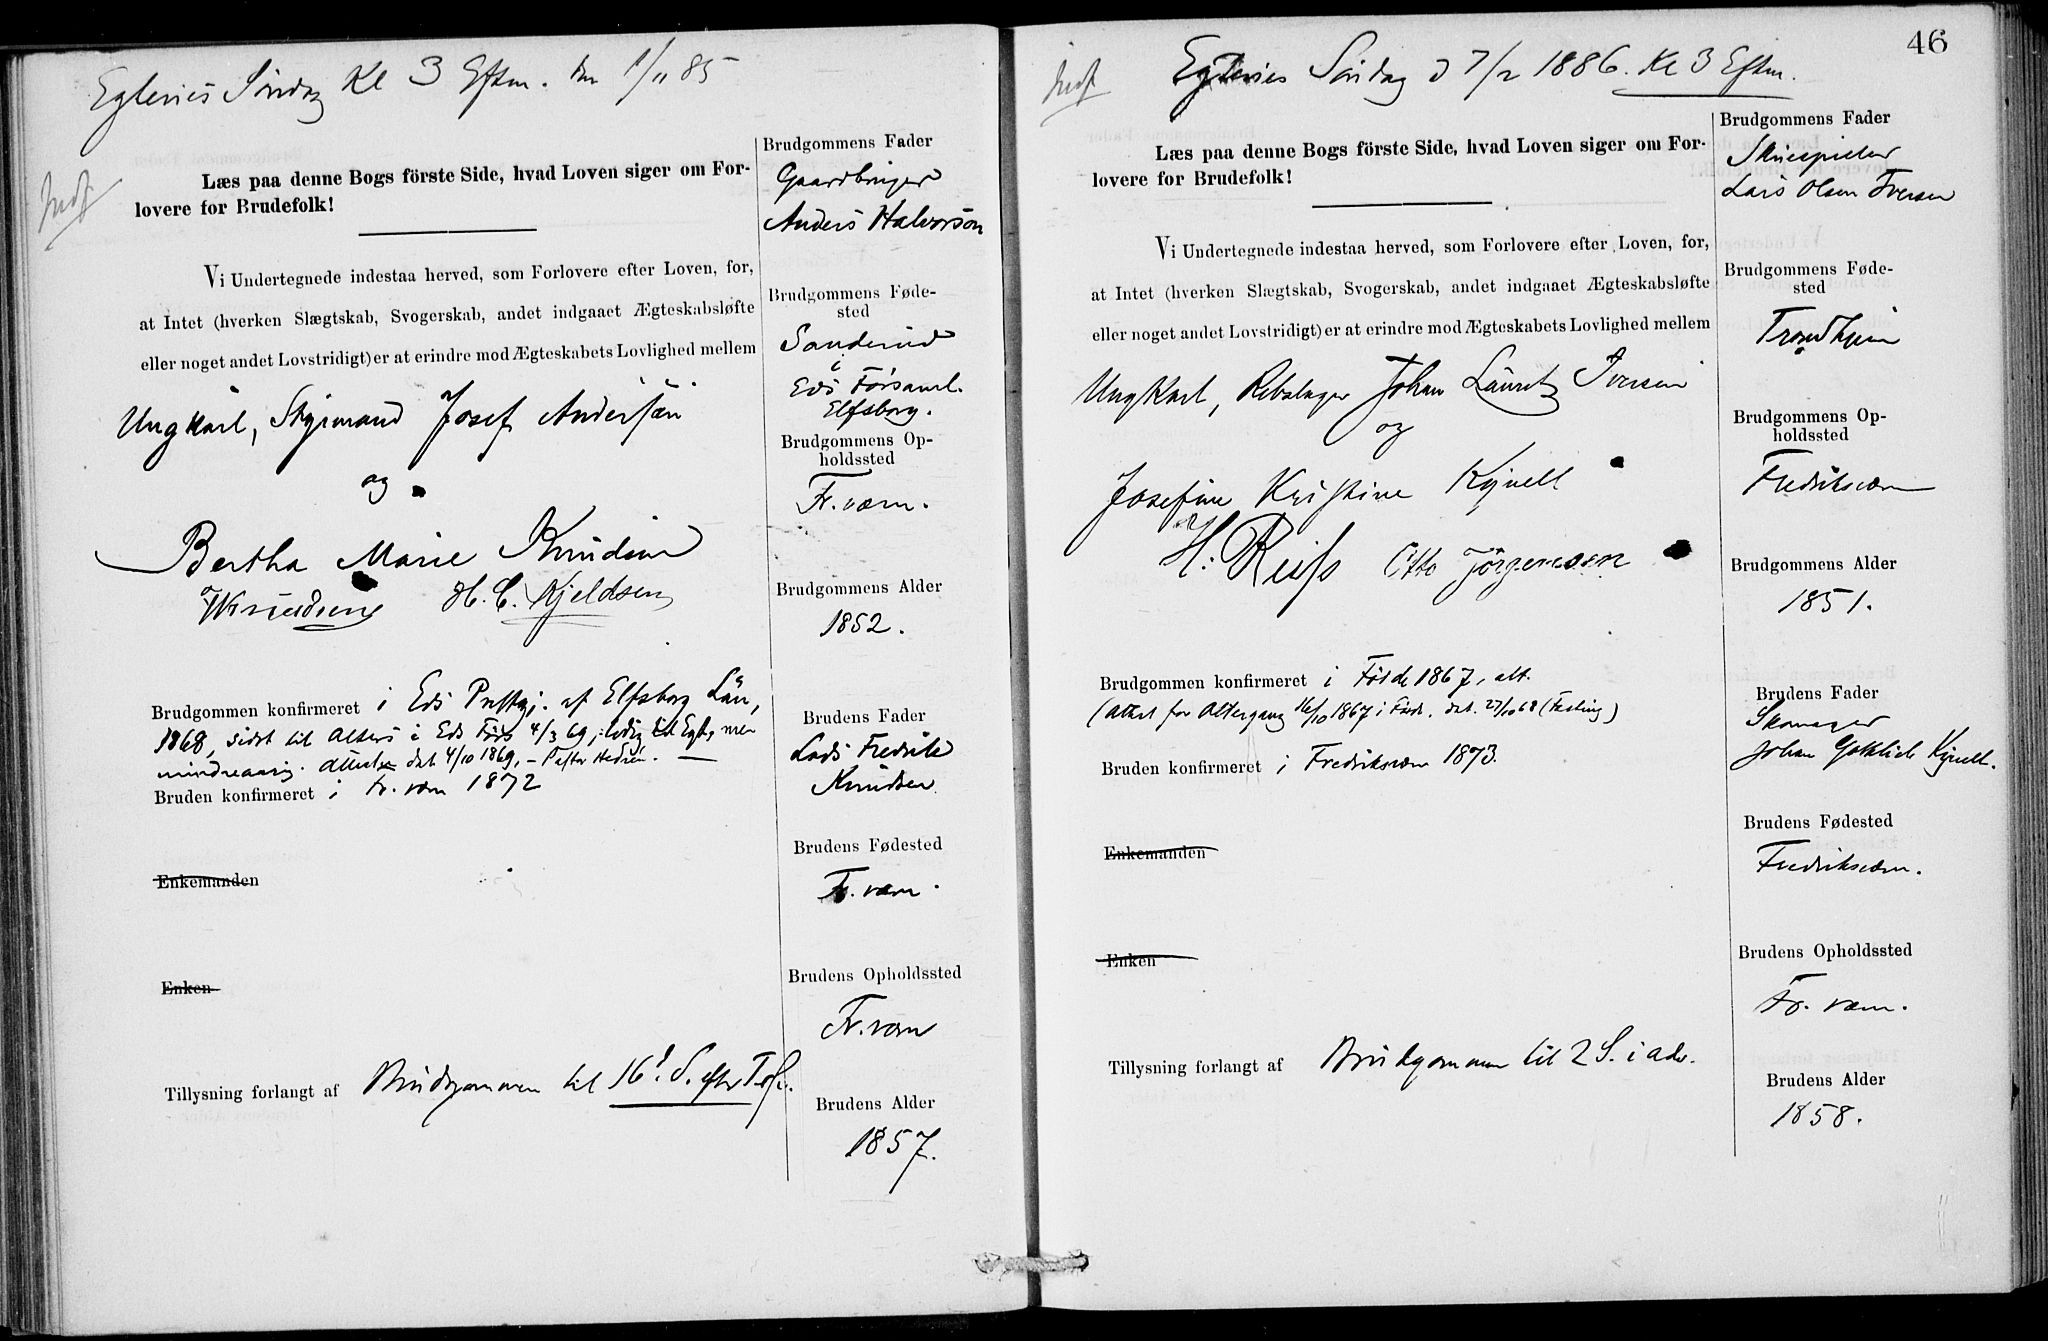 Egteviés Söndag Kl 3 Eftm. den 1/11 85
Indf
Læs paa denne Bogs förste Side, hvad Loven siger om For-
lovere for Brudefolk!
Vi Undertegnede indestaa herved, som Forlovere efter Loven, for,
at Intet (hverken Slægtskab, Svogerskab, andet indgaaet Ægteskabsløfte
eller noget andet Lovstridigt) er at erindre mod Ægteskabets Lovlighed mellem
Ungkarl, Styrmand Josef Andersön
og
Bertha Marie Knudsen
Knudsen H. C. Kjeldsen
Brudgommen konfirmeret i Eds Prstgj. af Elfsborg Län,
1868, sidst til Alters i Eds Förs 4/3 69, ledig til Egt., men
mindreaarig. Attest dat 4/10 1869, - Pastor Hedrén. -
Bruden konfirmeret i Fr. værn 1872
Enkemanden
Enken
Tillysning forlangt af Brudgommen til 16d S. efter Tref.
Brudgommens Fader
Gaardbruger
Anders Halvorson
Brudgommens Føde-
sted
Sanderud
i
Eds Församl.
Elfsborg.
Brudgommens Op-
holdssted
Fr. værn.
Brudgommens Alder
1852.
Brudens Fader
Lods Fredrik
Knudsen
Brudens Fødested
Fr. værn.
Brudens Opholdssted
Fr. værn
Brudens Alder
1857.
46
Indf
Egtevies Söndag d 7/2 1886. Kl 3 Eftm.
Læs paa denne Bogs förste Side, hvad Loven siger om For-
lovere for Brudefolk!
Vi Undertegnede indestaa herved, som Forlovere efter Loven, for,
at Intet (hverken Slægtskab, Svogerskab, andet indgaaet Ægteskabsløfte
eller noget andet Lovstridigt) er at erindre mod Ægteskabets Lovlighed mellem
Ungkarl, Rebslager Johan Lauritz Iversen
og
Josefine Kristine Kynell
H. Reiss Otto Jörgensen
Brudgommen konfirmeret i Förde 1867, att.
(Attest for Altergang 16/10 1867 i Förde, dat. 27/10 68 (Fasting)
Bruden konfirmeret i Fredriksværn 1873.
Enkemanden
Enken
Tillysning forlangt af Brudgommen til 2 S. i adv.
Brudgommens Fader
Skuespiller
Lars Olsen Iversen
Brudgommens Føde-
sted
Trondhjem
Brudgommens Op-
holdssted
Fredriksværn
Brudgommens Alder
1851.
Brudens Fader
Skomager
Johan Gottlieb Kynell.
Brudens Fødested
Fredriksværn.
Brudens Opholdssted
Fr. værn.
Brudens Alder
1858.